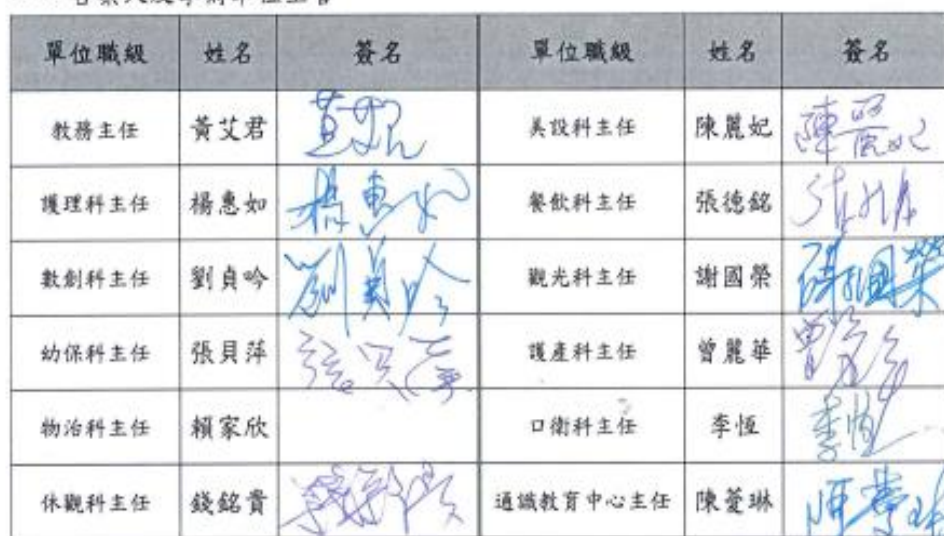 單位職級 姓名 簽名 單位職級 姓名 簽名
教務主任 黃艾君 美設科主任 陳麗妃 陳麗妃
護理科主任 楊惠如 楊惠如 餐飲科主任 張德銘
數創科主任 劉貞吟 劉貞吟 觀光科主任 謝國榮 謝國榮
幼保科主任 張貝萍 張貝萍 護產科主任 曾麗華
物治科主任 賴家欣 口衛科主任 李恆 李恆
休觀科主任 錢銘貴 通識教育中心主任 陳薆琳